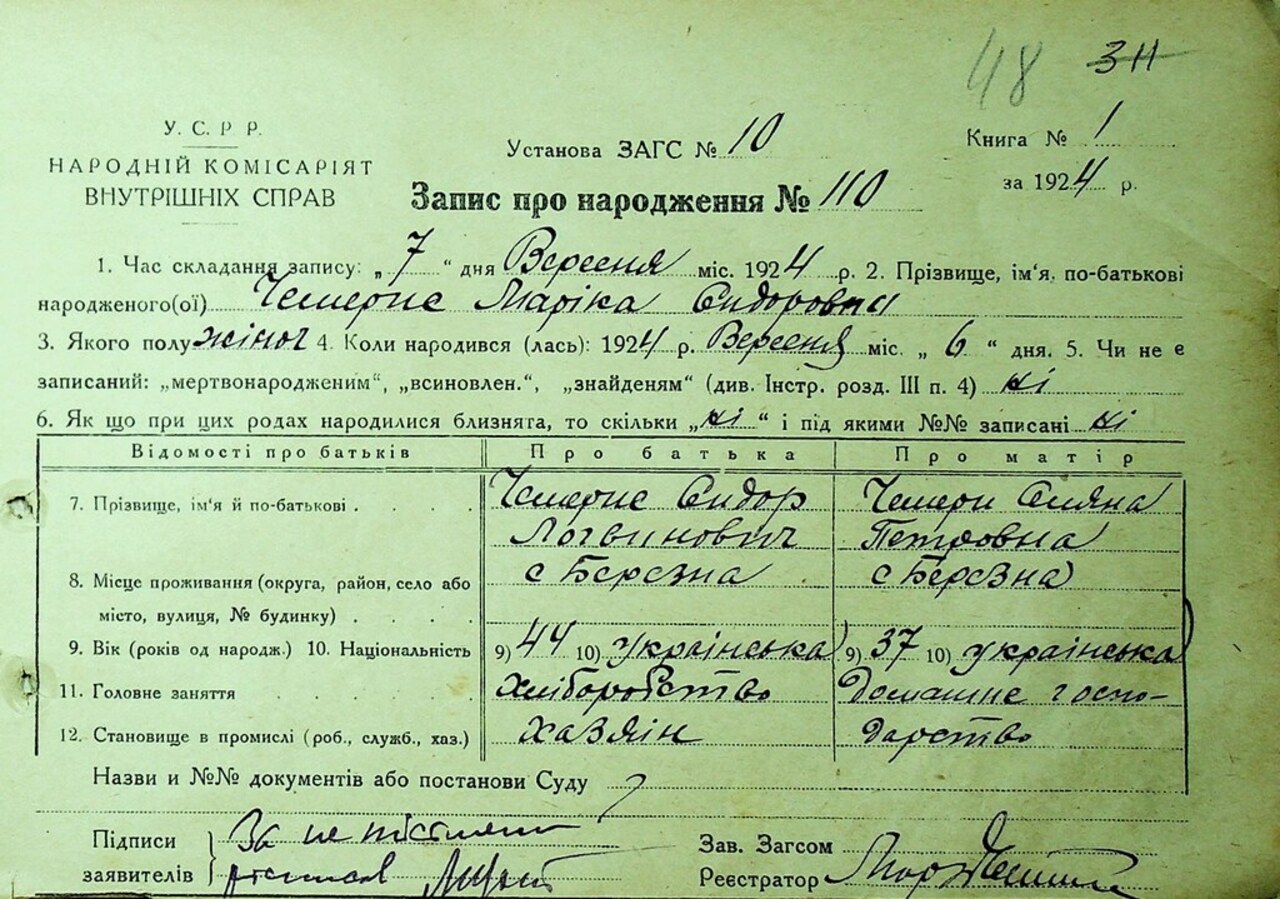 48 311
У. С. Р Р.
НАРОДНІЙ КОМІСАРІЯТ
ВНУТРІШНІХ СПРАВ
Установа ЗАГС № 10
Книга № 1
за 1924 р.
Запис про народження № 110
1. Час складання запису: „ 7 “ дня Вересня міс. 1924 р. 2. Прізвище, ім'я, по-батькові
народженого(ої) Чемерис Маріка Сидоровна
3. Якого полу жіноч 4. Коли народився (лась): 1924 р. Вересня міс. „ 6 “ дня. 5. Чи не є
записаний: „мертвонародженим“, „всиновлен.“, „знайденям“ (див. Інстр. розд. III п. 4) ні
6. Як що при цих родах народилися близнята, то скільки „ ні “ і під якими №№ записані ні
Відомості про батьків Про батька Про матір
7. Прізвище, ім'я й по-батькові Чемерис Сидор Чемери
Логвинович Петровна
8. Місце проживання (округа, район, село або с Березна с Березна
місто, вулиця, № будинку)
9. Вік (років од народж.) 10. Національність 9) 44 10) українська 9) 37 10) українська
11. Головне заняття Хліборобство Домашнє госпо-
12. Становище в промислі (роб., служб., хаз.) хазяїн дарство
Назви и №№ документів або постанови Суду
Підписи За
заявителів
Зав. Загсом
Реєстратор